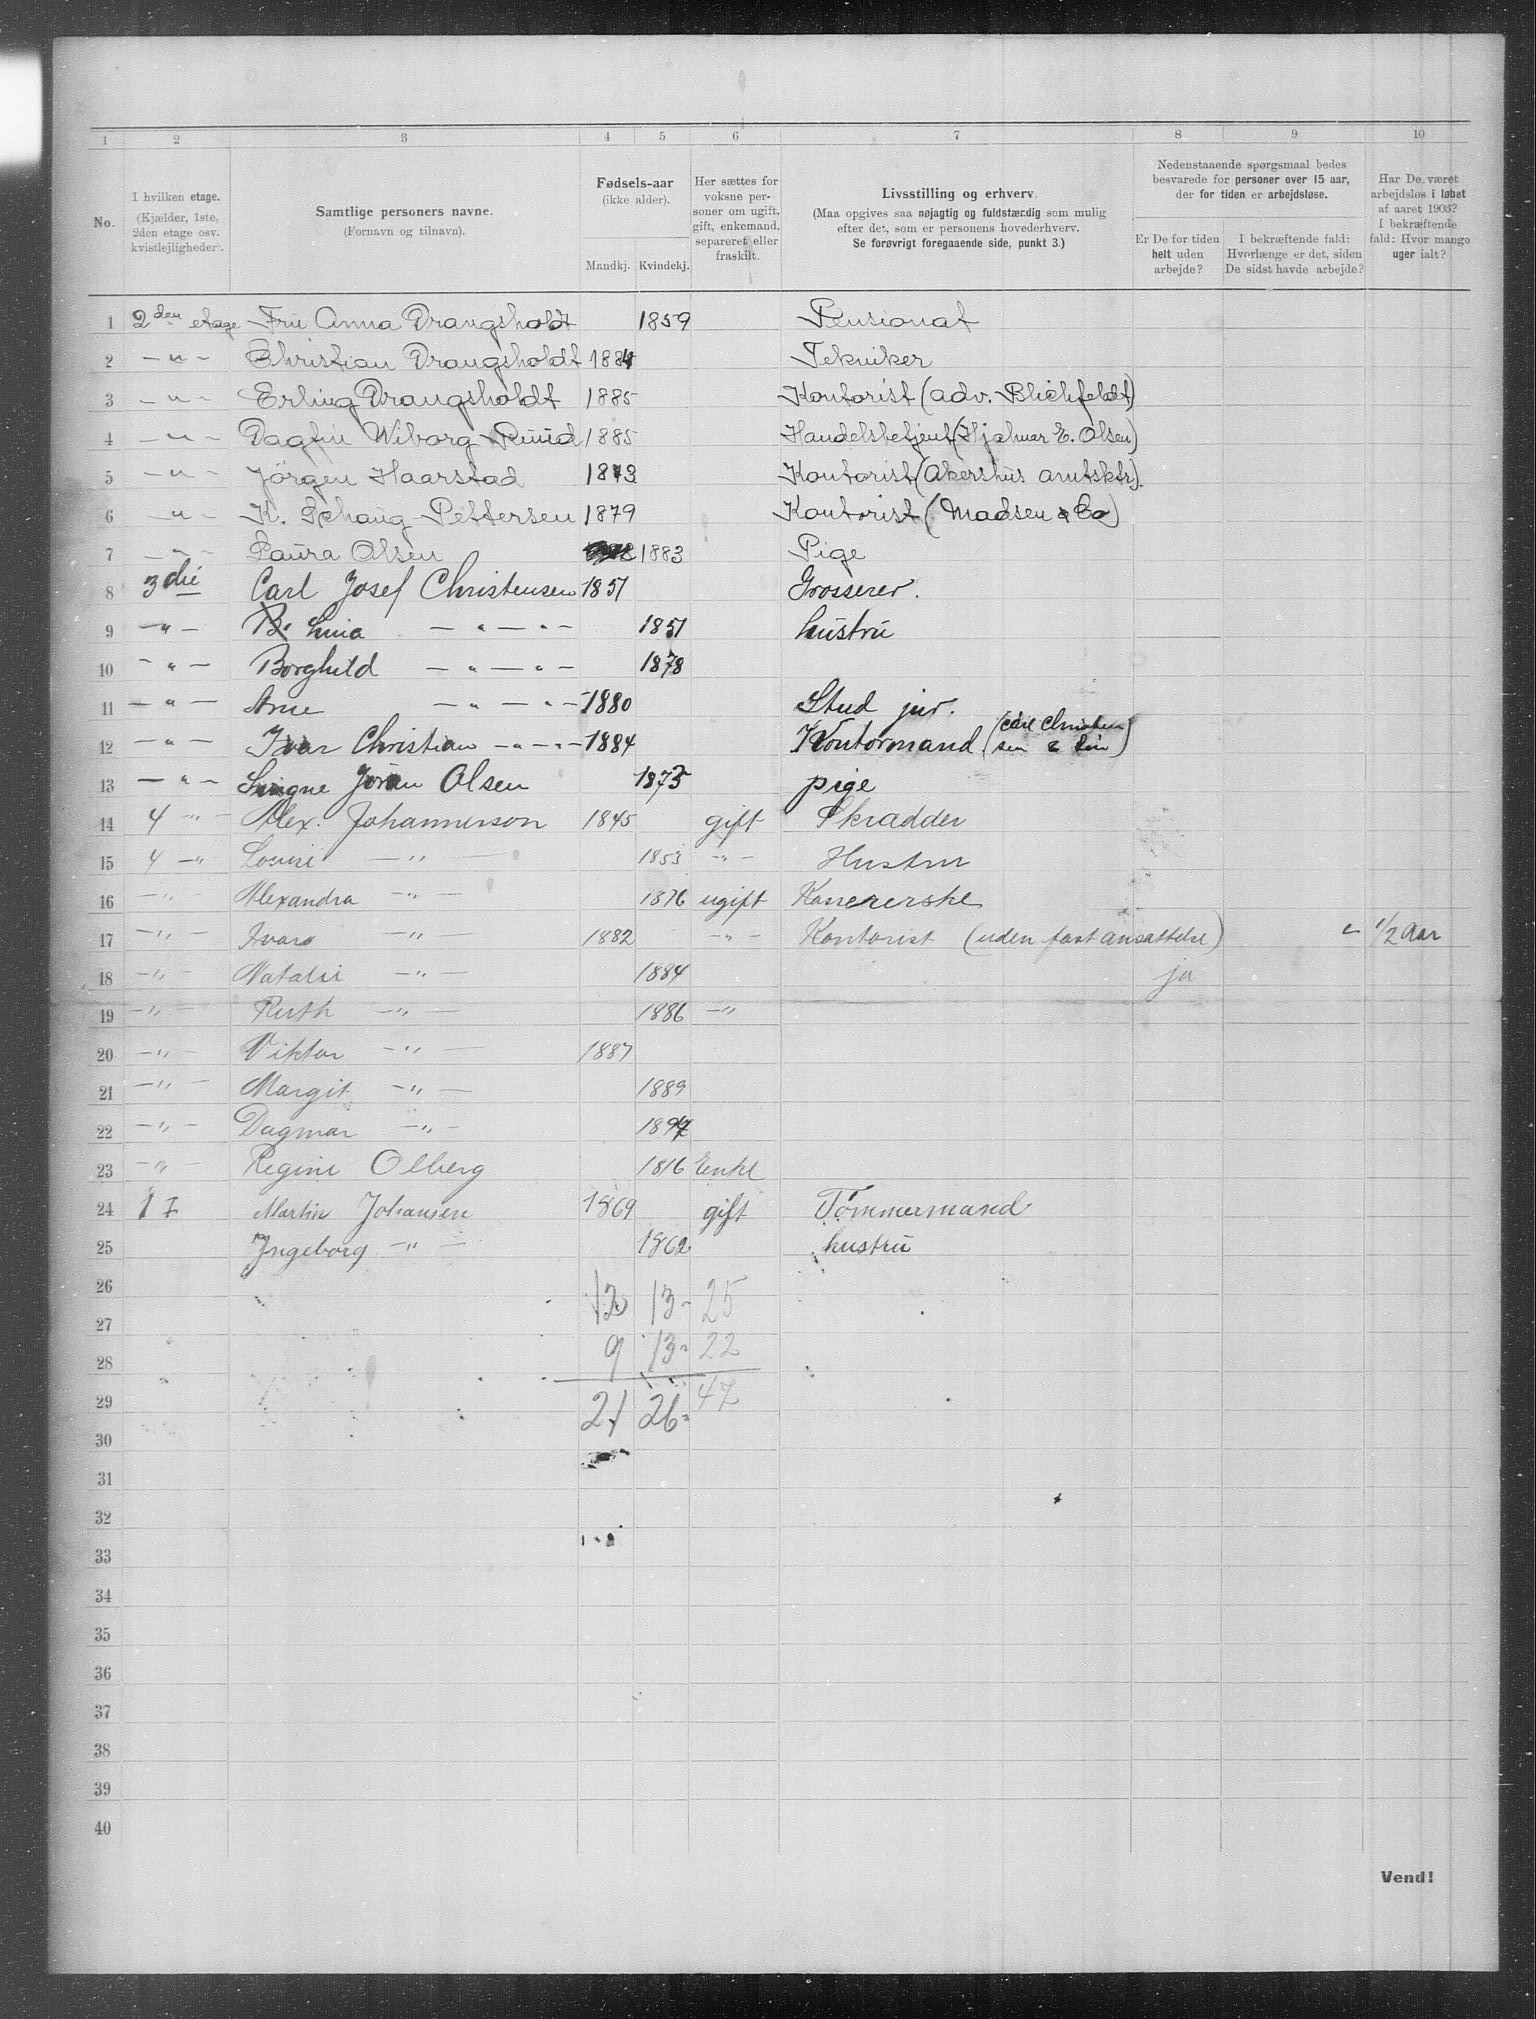 1 2 3 4 5 6 7 8 9 10
No.
I hvilken etage.
(Kjælder, 1ste,
2den etage osv.
kvistlejligheder).
Samtlige personers navne.
(Fornavn og tilnavn).
Fødsels-aar
(ikke alder).
Mandkj. Kvindekj.
Her sættes for
voksne per-
soner om ugift,
gift, enkemand,
separeret eller
fraskilt.
Livsstilling og erhverv.
(Maa opgives saa nøjagtig og fuldstændig som mulig
efter det, som er personens hovederhverv.
Se forøvrigt foregaaende side, punkt 3.)
Nedenstaaende spørgsmaal bedes
besvarede for personer over 15 aar,
der for tiden er arbejdsløse.
Er De for tiden
helt uden
arbejde?
I bekræftende fald:
Hvorlænge er det, siden
De sidst havde arbejde?
Har De været
arbejdsløs i løbet
af aaret 1903?
I bekræftende
fald: Hvor mange
uger ialt?
1 2den etage Fru Anna Drangsholdt 1859 Pensionat
2 — " — Christian Drangsholdt 1884 Tekniker
3 — " — Erling Drangsholdt 1885 Kontorist (adv. Blichfeldt)
4 — " — Dagfin Wiborg Ruud 1885 Handelsbetjent (Hjalmar E. Olsen)
5 — " — Jörgen Haarstad 1873 Kontorist (Akershus amtsktr).
6 — " — K. Schaug-Pettersen 1879 Kontorist (Madsen & Co)
7 — " — Laura Olsen 1883 Pige
8 3die Carl Josef Christensen 1851 Grosserer.
9 — " — — " — " — 1851 hustru
10 — " — Borghild — " — " — 1878
11 — " — Arne — " — " — 1880 Stud jur.
12 — " — Ivar Christian — " — " — 1884 Kontormand (Carl Christen
sen & Sön)
13 — " — Olsen 1873 pige
14 4 — " — Alex. Johannerson 1845 gift Skradder
15 4 — " Louise — " — 1853 — " — Hustru
16 — " — Alexandra — " — 1876 ugift
17 — " — Ivar — " — 1882 — " — Kontorist (uden fast ansattelse) 1/2 Aar
18 — " — Natalie — " — 1884 ja
19 — " — Ruth — " — 1886 — "
20 — " — Viktor — " — 1887
21 — " — Margit — " — 1889
22 — " — Dagmar — " —
23 — " Regine Olberg 1816 Enke
24 1 I Martin Johansen 1869 gift Tömmermand
25 Ingeborg — " — 1862 hustru
26 12 13 - 25
27
28 9 13 - 22
29 21 26 - 47
30
31
32
33
34
35
36
37
38
39
40
Vend!